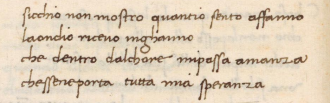 sicchio non mostro quantio sento affanno
laondio ricevo inghanno
che dentro dalchore mipassa amanza
chesseneporta tutta mia speranza